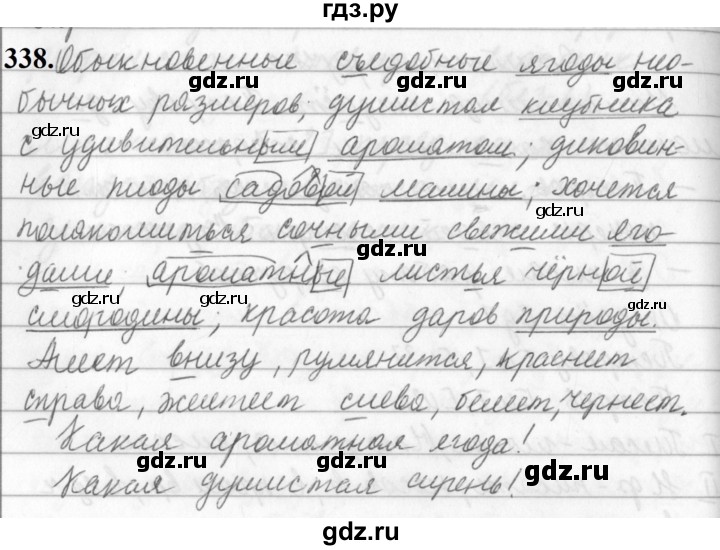 гдз.ру
338. Обыкновенные съедобные ягоды необычных размеров; душистая клубника
с удивительным ароматом; диковинные плоды садовой малины; хочется
полакомиться сочными свежими ягодами, ароматные листья чёрной
смородины; красота даров природы.
Алеет внизу, румянится, краснеет
справа, желтеет слева, белеет, чернеет.
Какая ароматная ягода!
Какая душистая сирень!
gdz.ru